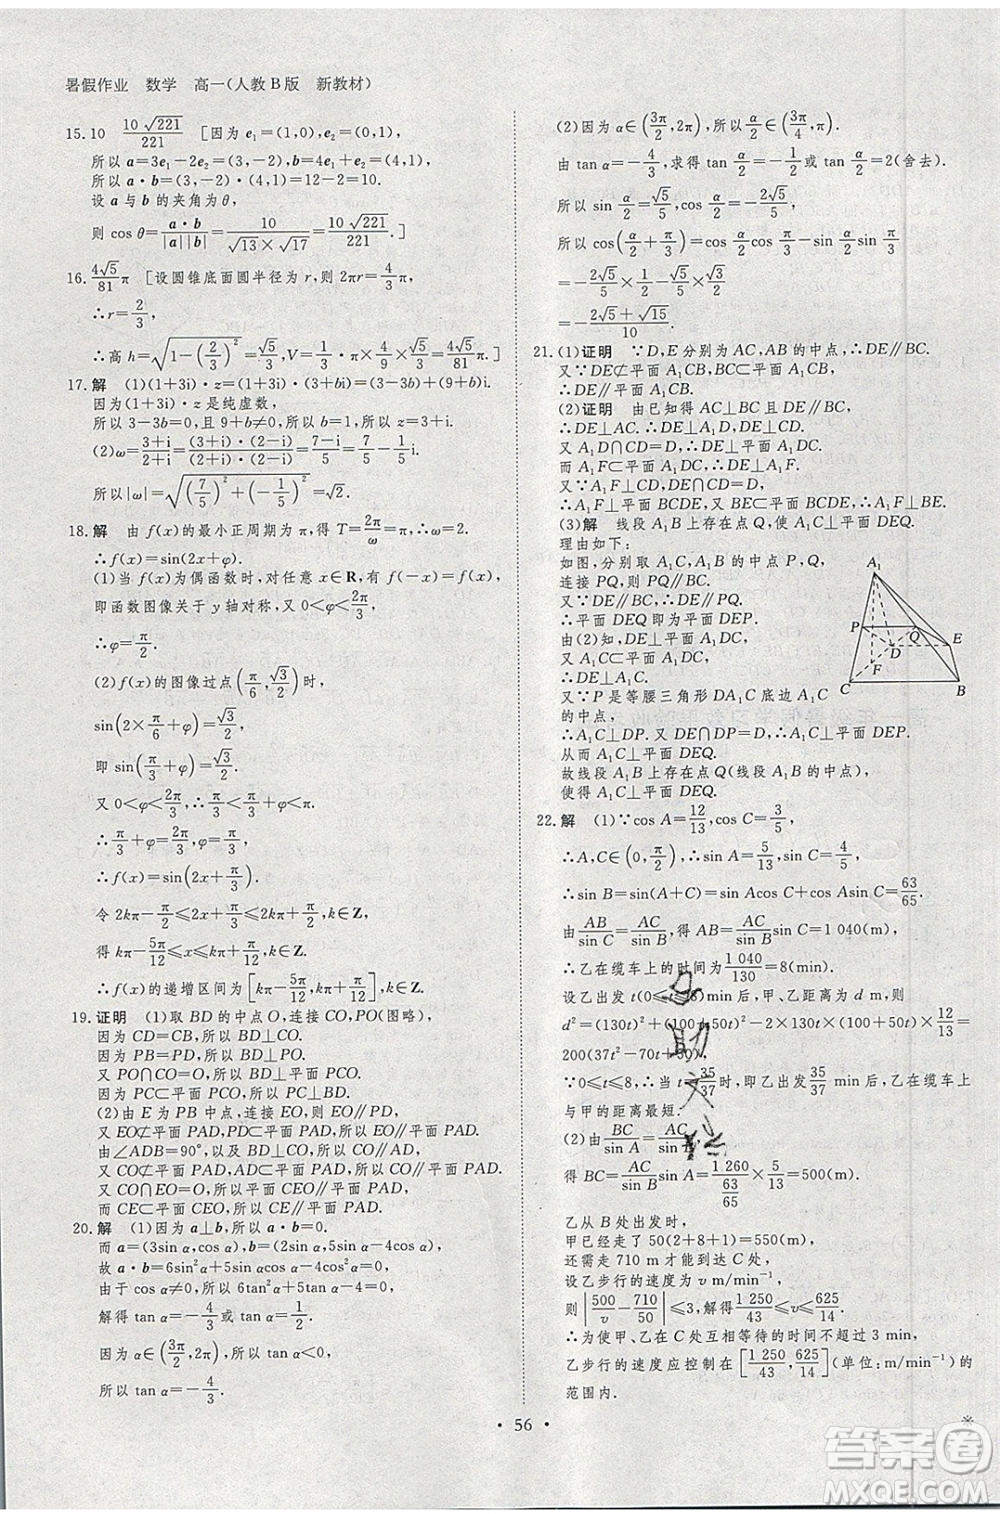 暑假作业 数学 高一(人教B版 新教材)
15.10 10√221/221 [因为e₁=(1,0),e₂=(0,1),
所以a=3e₁-2e₂=(3,-2),b=4e₁+e₂=(4,1),
所以a·b=(3,-2)·(4,1)=12-2=10.
设a与b的夹角为θ,
则cos θ=a·b/|a||b|=10/(√13×√17)=10√221/221.]
16.4√5/81π [设圆锥底面圆半径为r,则2πr=4/3π,
∴r=2/3,
∴高h=√(1-(2/3)²)=√5/3,V=1/3·π·4/9·√5/3=4√5/81π.]
17.解 (1)(1+3i)·z=(1+3i)(3+bi)=(3-3b)+(9+b)i.
因为(1+3i)·z是纯虚数,
所以3-3b=0,且9+b≠0,所以b=1,所以z=3+i.
(2)ω=(3+i)/(2+i)=(3+i)·(2-i)/(2+i)·(2-i)=(7-i)/5=7/5-1/5i.
所以|ω|=√((7/5)²+(-1/5)²)=√2.
18.解 由f(x)的最小正周期为π,得T=2π/ω=π,∴ω=2.
∴f(x)=sin(2x+φ).
(1)当f(x)为偶函数时,对任意x∈R,有f(-x)=f(x),
即函数图像关于y轴对称,又0<φ<2π/3,
∴φ=π/2.
(2)f(x)的图像过点(π/6,√3/2)时,
sin(2×π/6+φ)=√3/2,
即sin(π/3+φ)=√3/2.
又0<φ<2π/3,∴π/3<π/3+φ<π.
∴π/3+φ=2π/3,φ=π/3.
∴f(x)=sin(2x+π/3).
令2kπ-π/2≤2x+π/3≤2kπ+π/2,k∈Z,
得kπ-5π/12≤x≤kπ+π/12,k∈Z.
∴f(x)的递增区间为[kπ-5π/12,kπ+π/12],k∈Z.
19.证明 (1)取BD的中点O,连接CO,PO(图略),
因为CD=CB,所以△CBD为等腰三角形,所以BD⊥CO.
因为PB=PD,所以△PBD为等腰三角形,所以BD⊥PO.
又PO∩CO=O,所以BD⊥平面PCO.
因为PC⊂平面PCO,所以PC⊥BD.
(2)由E为PB中点,连接EO,则EO∥PD,
又EO⊄平面PAD,PD⊂平面PAD,所以EO∥平面PAD.
由∠ADB=90°,以及BD⊥CO,所以CO∥AD,
又CO⊄平面PAD,AD⊂平面PAD,所以CO∥平面PAD.
又CO∩EO=O,所以平面CEO∥平面PAD,
而CE⊂平面CEO,所以CE∥平面PAD.
20.解 (1)因为a⊥b,所以a·b=0.
而a=(3sin α,cos α),b=(2sin α,5sin α-4cos α),
故a·b=6sin²α+5sin αcos α-4cos²α=0.
由于cos α≠0,所以6tan²α+5tan α-4=0,
解得tan α=-4/3或tan α=1/2.
因为α∈(3π/2,2π),所以tan α<0,
所以tan α=-4/3.
(2)因为α∈(3π/2,2π),所以α/2∈(3π/4,π).
由tan α=-4/3,求得tan α/2=-1/2或tan α/2=2(舍去).
所以sin α/2=√5/5,cos α/2=-2√5/5,
所以cos(α/2+π/3)=cos α/2cos π/3-sin α/2sin π/3
=-2√5/5×1/2-√5/5×√3/2
=-(2√5+√15)/10.
21.(1)证明 ∵D,E分别为AC,AB的中点,∴DE∥BC.
又∵DE⊄平面A₁CB,BC⊂平面A₁CB,
∴DE∥平面A₁CB.
(2)证明 由已知得AC⊥BC且DE∥BC,
∴DE⊥AC.∴DE⊥A₁D,DE⊥CD.
又A₁D∩CD=D,∴DE⊥平面A₁DC.
而A₁F⊂平面A₁DC,∴DE⊥A₁F.
又∵A₁F⊥CD,DE∩CD=D,
∴A₁F⊥平面BCDE,又BE⊂平面BCDE,∴A₁F⊥BE.
(3)解 线段A₁B上存在点Q,使A₁C⊥平面DEQ.
理由如下:
如图,分别取A₁C,A₁B的中点P,Q,
连接PQ,则PQ∥BC.
又∵DE∥BC,∴DE∥PQ.
∴平面DEQ即为平面DEP.
由(2)知,DE⊥平面A₁DC,
又∵A₁C⊂平面A₁DC,
∴DE⊥A₁C.
又∵P是等腰三角形DA₁C底边A₁C
的中点,
∴A₁C⊥DP.又DE∩DP=D,
∴A₁C⊥平面DEP.
从而A₁C⊥平面DEQ.
故线段A₁B上存在点Q(线段A₁B的中点),
使得A₁C⊥平面DEQ.
A₁
P
Q
E
D
F
C
B
22.解 (1)∵cos A=12/13,cos C=3/5,
∴A,C∈(0,π/2),∴sin A=5/13,sin C=4/5.
∴sin B=sin(A+C)=sin Acos C+cos Asin C=63/65.
由AB/sin C=AC/sin B,得AB=AC/sin B·sin C=1 040(m),
∴乙在缆车上的时间为1 040/130=8(min).
设乙出发t(0≤t≤8)min后,甲、乙距离为d m,则
d²=(130t)²+(100+50t)²-2×130t×(100+50t)×12/13=
200(37t²-70t+50).
∵0≤t≤8,∴当t=35/37时,即乙出发35/37 min后,乙在缆车上
与甲的距离最短.
(2)由BC/sin A=AC/sin B,
得BC=AC/sin B×sin A=1 260/(63/65)×5/13=500(m).
乙从B处出发时,
甲已走了50(2+8+1)=550(m),
还需走710 m才能到达C处,
设乙步行的速度为v m/min⁻¹,
则|500/v-710/50|≤3,解得1 250/43≤v≤625/14.
∴为使甲、乙在C处互相等待的时间不超过3 min,
乙步行的速度应控制在[1 250/43,625/14](单位:m/min⁻¹)的
范围内.
· 56 ·
答案圈
MXQE.COM